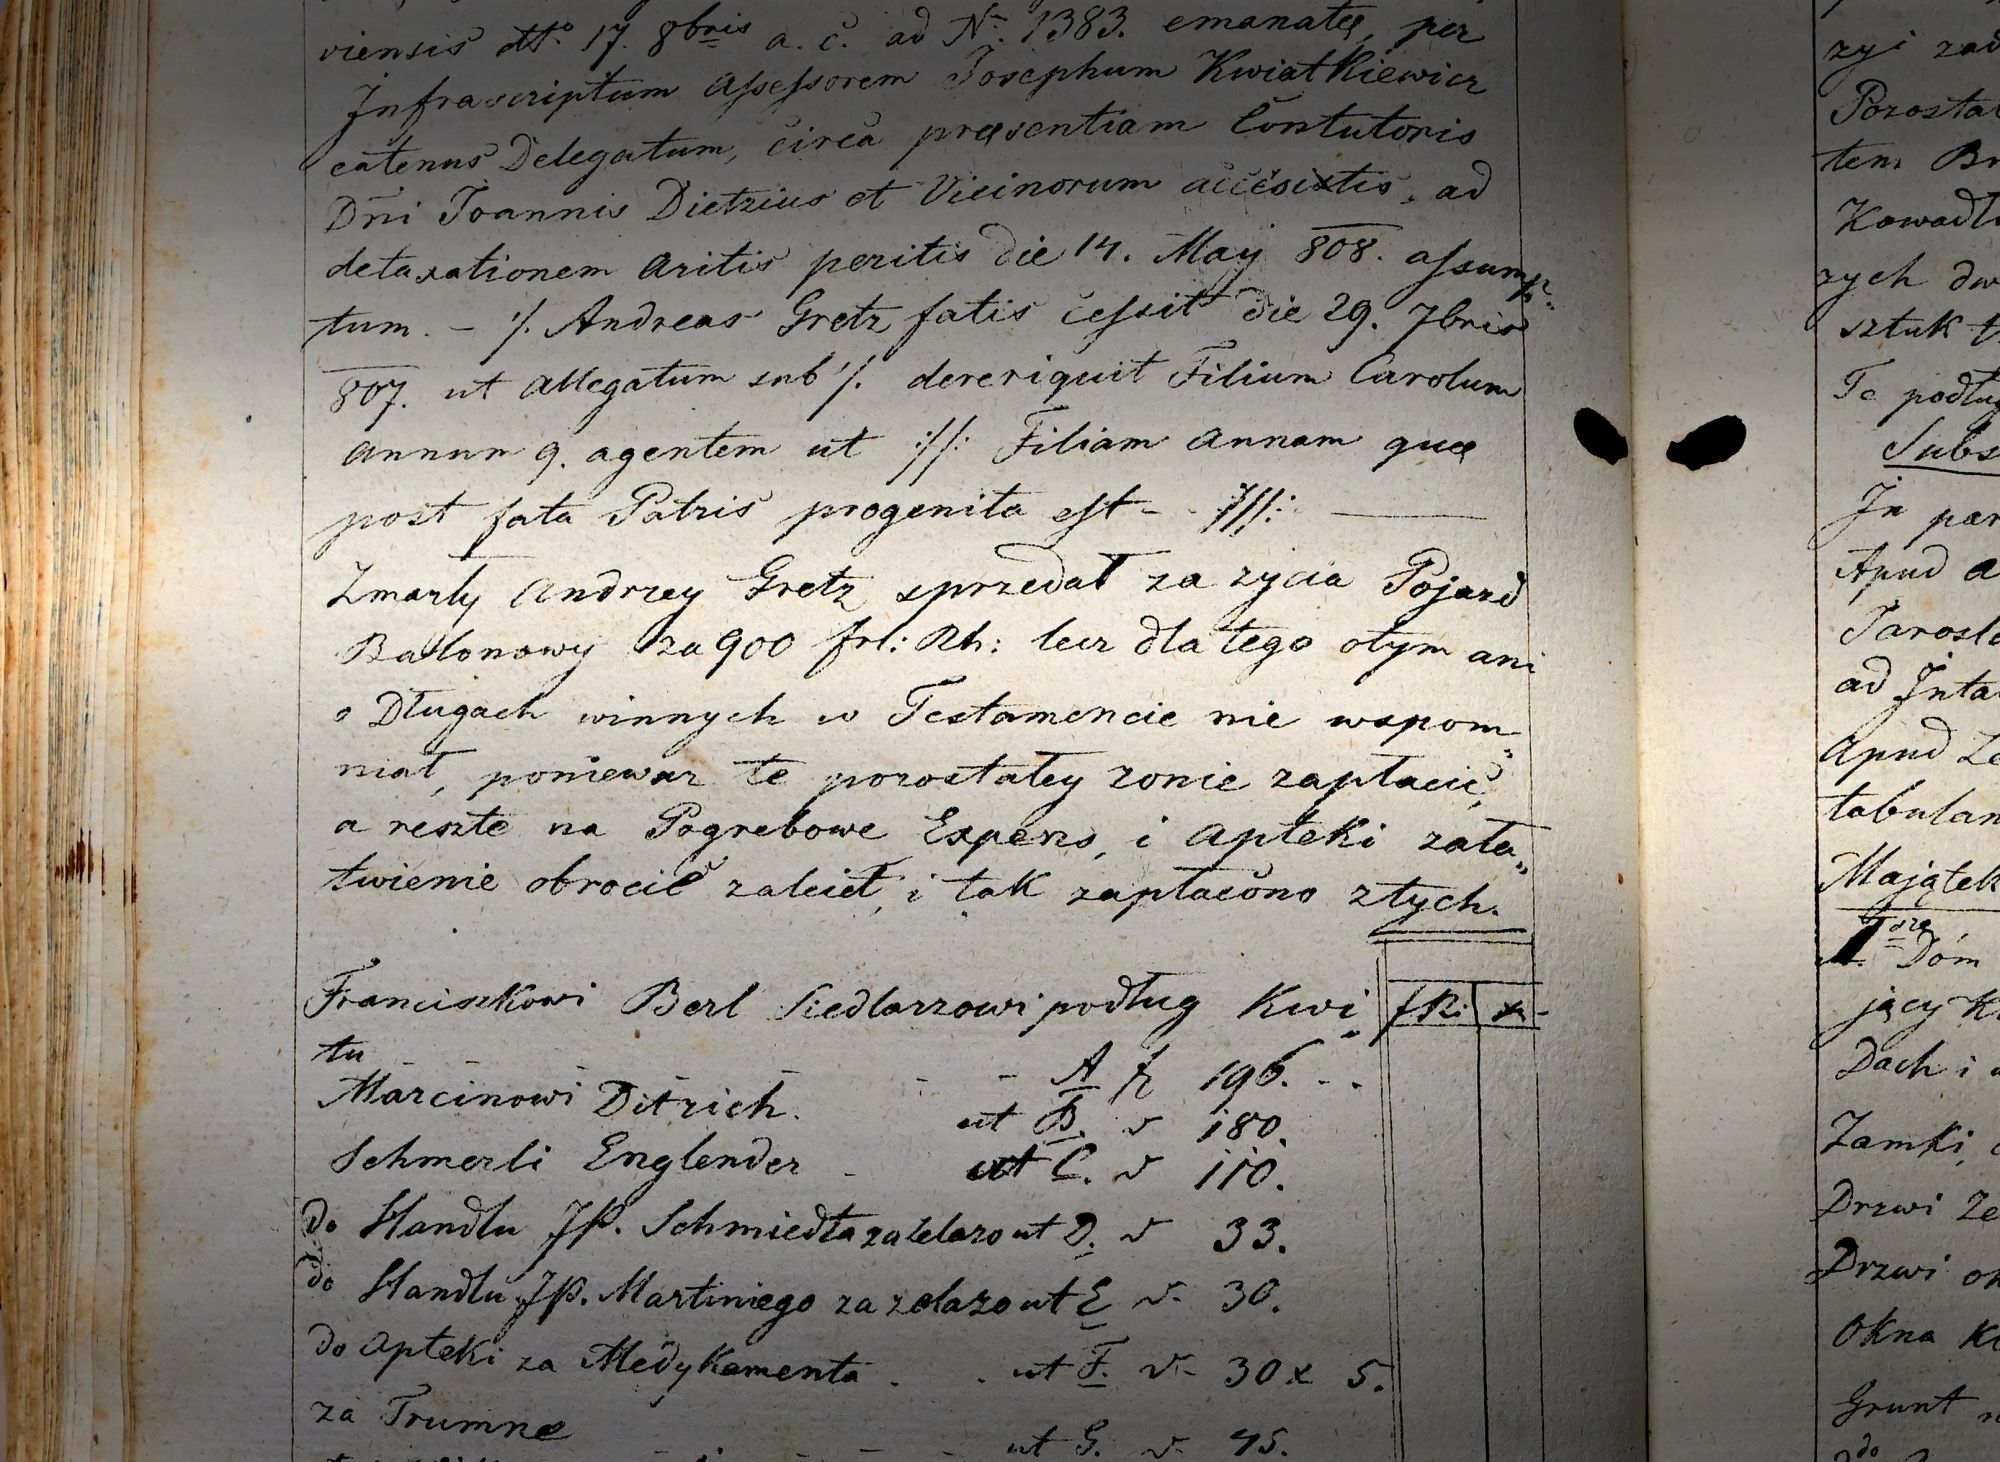 viensis dtto 17. 8bris a. c. ad Nr. 1383. emanatę, per
Infrascriptum Assessorem Josephum Kwiatkiewicz
eatenus Delegatum, circa pręsentiam Contutoris
Dni Joannis Dietzius et Vicinorum ad
detaxationem Artis peritis die 14. May 808. assump„
tum. – ·/. Andreas Gretz fatis cessit die 29. 7bris
807. ut Allegatum sub ·/. Filium Carolum
annum 9. agentem ut ·//: Filiam Annam quę
post fata Patris progenita est - - ·///: ———
Zmarly Andrzey Gretz sprzedał za zycia Pojazd
Balonowy za 900 frl: Rh: lecz dla tego otym ani
o Długach winnych w Testamencie nie wspom„
niał, poniewaz te pozostałey zonie zapłacić,
a reszte na Pogrebowe Expens, i Apteki zała„
twienie obrocić zalcił, i tak zapłacono złtych.
Franciszkowi Berl Siedlarzowi podług Kwi„ fRi xr
tu - - - - - A fr 196. - .
Marcinowi Ditrich. ut B. v 180.
Schmerli Englender - ut C. v 110.
do Handlu JP. Schmiedta za zelazo ut D. v 33.
do Handlu JP. Martiniego za zelazo ut E v 30.
do Apteki za Medykamenta . . ut F. v 30 x 5.
za Trumne - - - - ut G. v 45.
zyi
Pozosta
tem
Kowadł
zych dw
sztuk
Te podług
Subs
In par
Apud a
Jarosl
ad Inta
Apud
tabulan
Majątek
1sze Dóm
jący
Dach i
Zamki,
Drzwi
Drzwi
Okna
Grunt